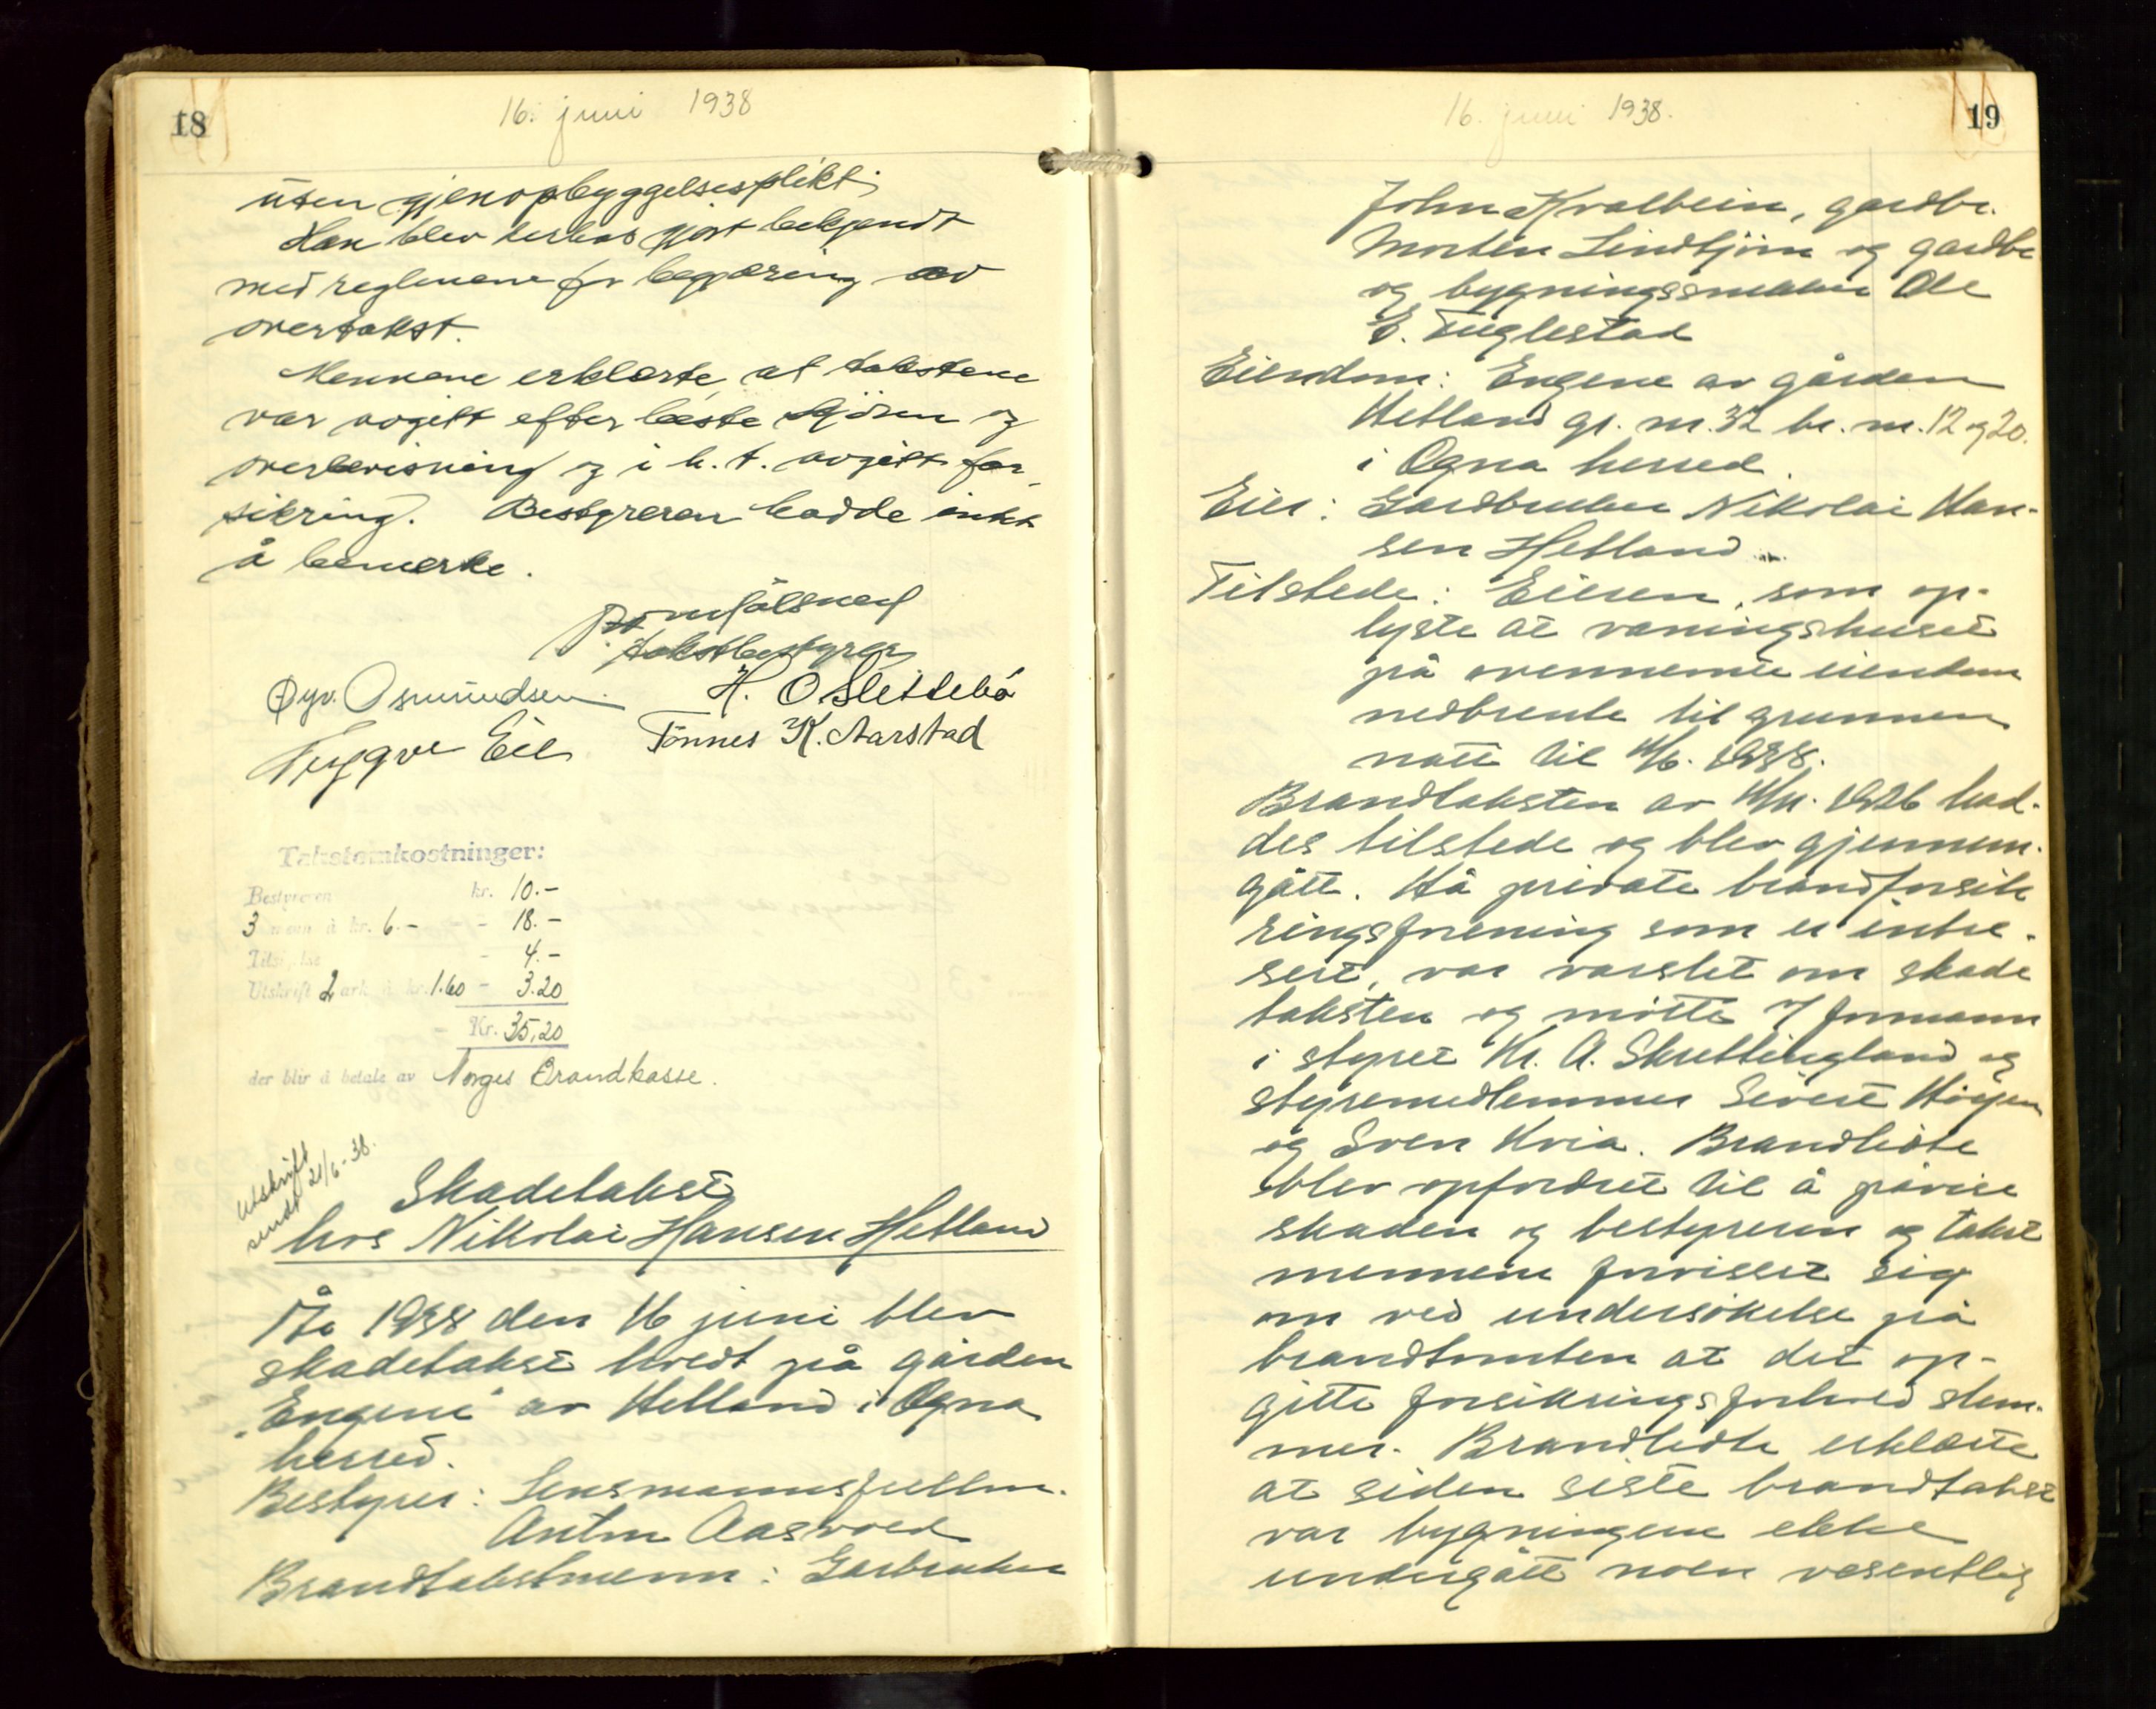 18
16. juni 1938
uten gjenopbyggelsesplikt.
Han blev derhos gjort bekjendt
med reglerne for begjæring av
overtakst.
Mennene erklærte, at takstene
var avgitt efter beste skjönn og
overbevisning og i h. t. avgitt for-
sikring. Bestyreren hadde intet
å bemerke.
takstbestyrer
Öyv. Asmundsen. H. O. Slettebö
Trygve Eie Tönnes K. Aarstad
Takstomkostninger:
Bestyreren kr. 10.-
3 menn à kr. 6.- - 18.-
- 4.-
Utskrift 2 ark à kr. 1.60 - 3.20
Kr. 35,20
der blir å betale av Norges Brandkasse.
Utskrift
sendt 21/6-38.
Skadetakst
hos Nikolai Hansen Hetland
År 1938 den 16 juni blev
skadetakst holdt på gården
"Engene" av Hetland i Ogna
herred.
Bestyrer: Lensmannsfullm.
Anton Aasvold
Brandtakstmenn: Garbruker
19
16. juni 1938.
John Kvalbein, gardbr.
Morten Lindtjörn og gardbr
og bygningssnekker Ole
E. Fuglestad
Eiendom: Engene av gården
Hetland gr. nr. 32 br. nr. 12 og 20.
i Ogna herred.
Eier: Gardbruker Nikolai Han-
sen Hetland
Tilstede: Eieren, som op-
lyste at våningshuset
på ovennevnte eiendom
nedbrente til grunnen
natt til 4/6. 1938.
Brandtaksten av 1926 had-
des tilstede og blev gjennem-
gått. Hå private brandforsik
ringsforening som er intre-
sert, var varslet om skade
taksten og mötte v/ formann
i styret Kr. A. Skretting­land og
styremedlemmer Sivert Höyen
og Sven Kvia. Brandlidte
blev opfordret til å påvise
skaden og bestyreren og takst
mennene forvisset sig
om ved undersökelse på
brandtomten at det op-
gitte forsikringsforhold stem-
mer. Brandlidte erklærte
at siden siste brandtakst
var bygningene ikke
undergått noen vesentlig